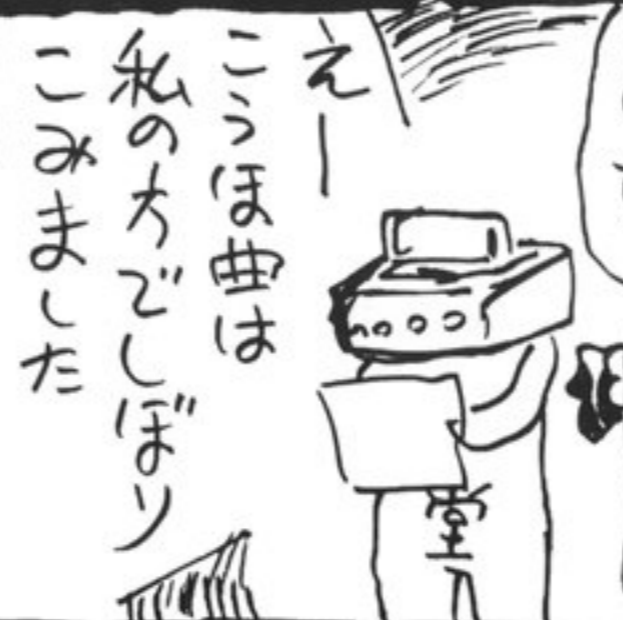 えー
こうほ曲は
私の方でしぼり
こみました
堂